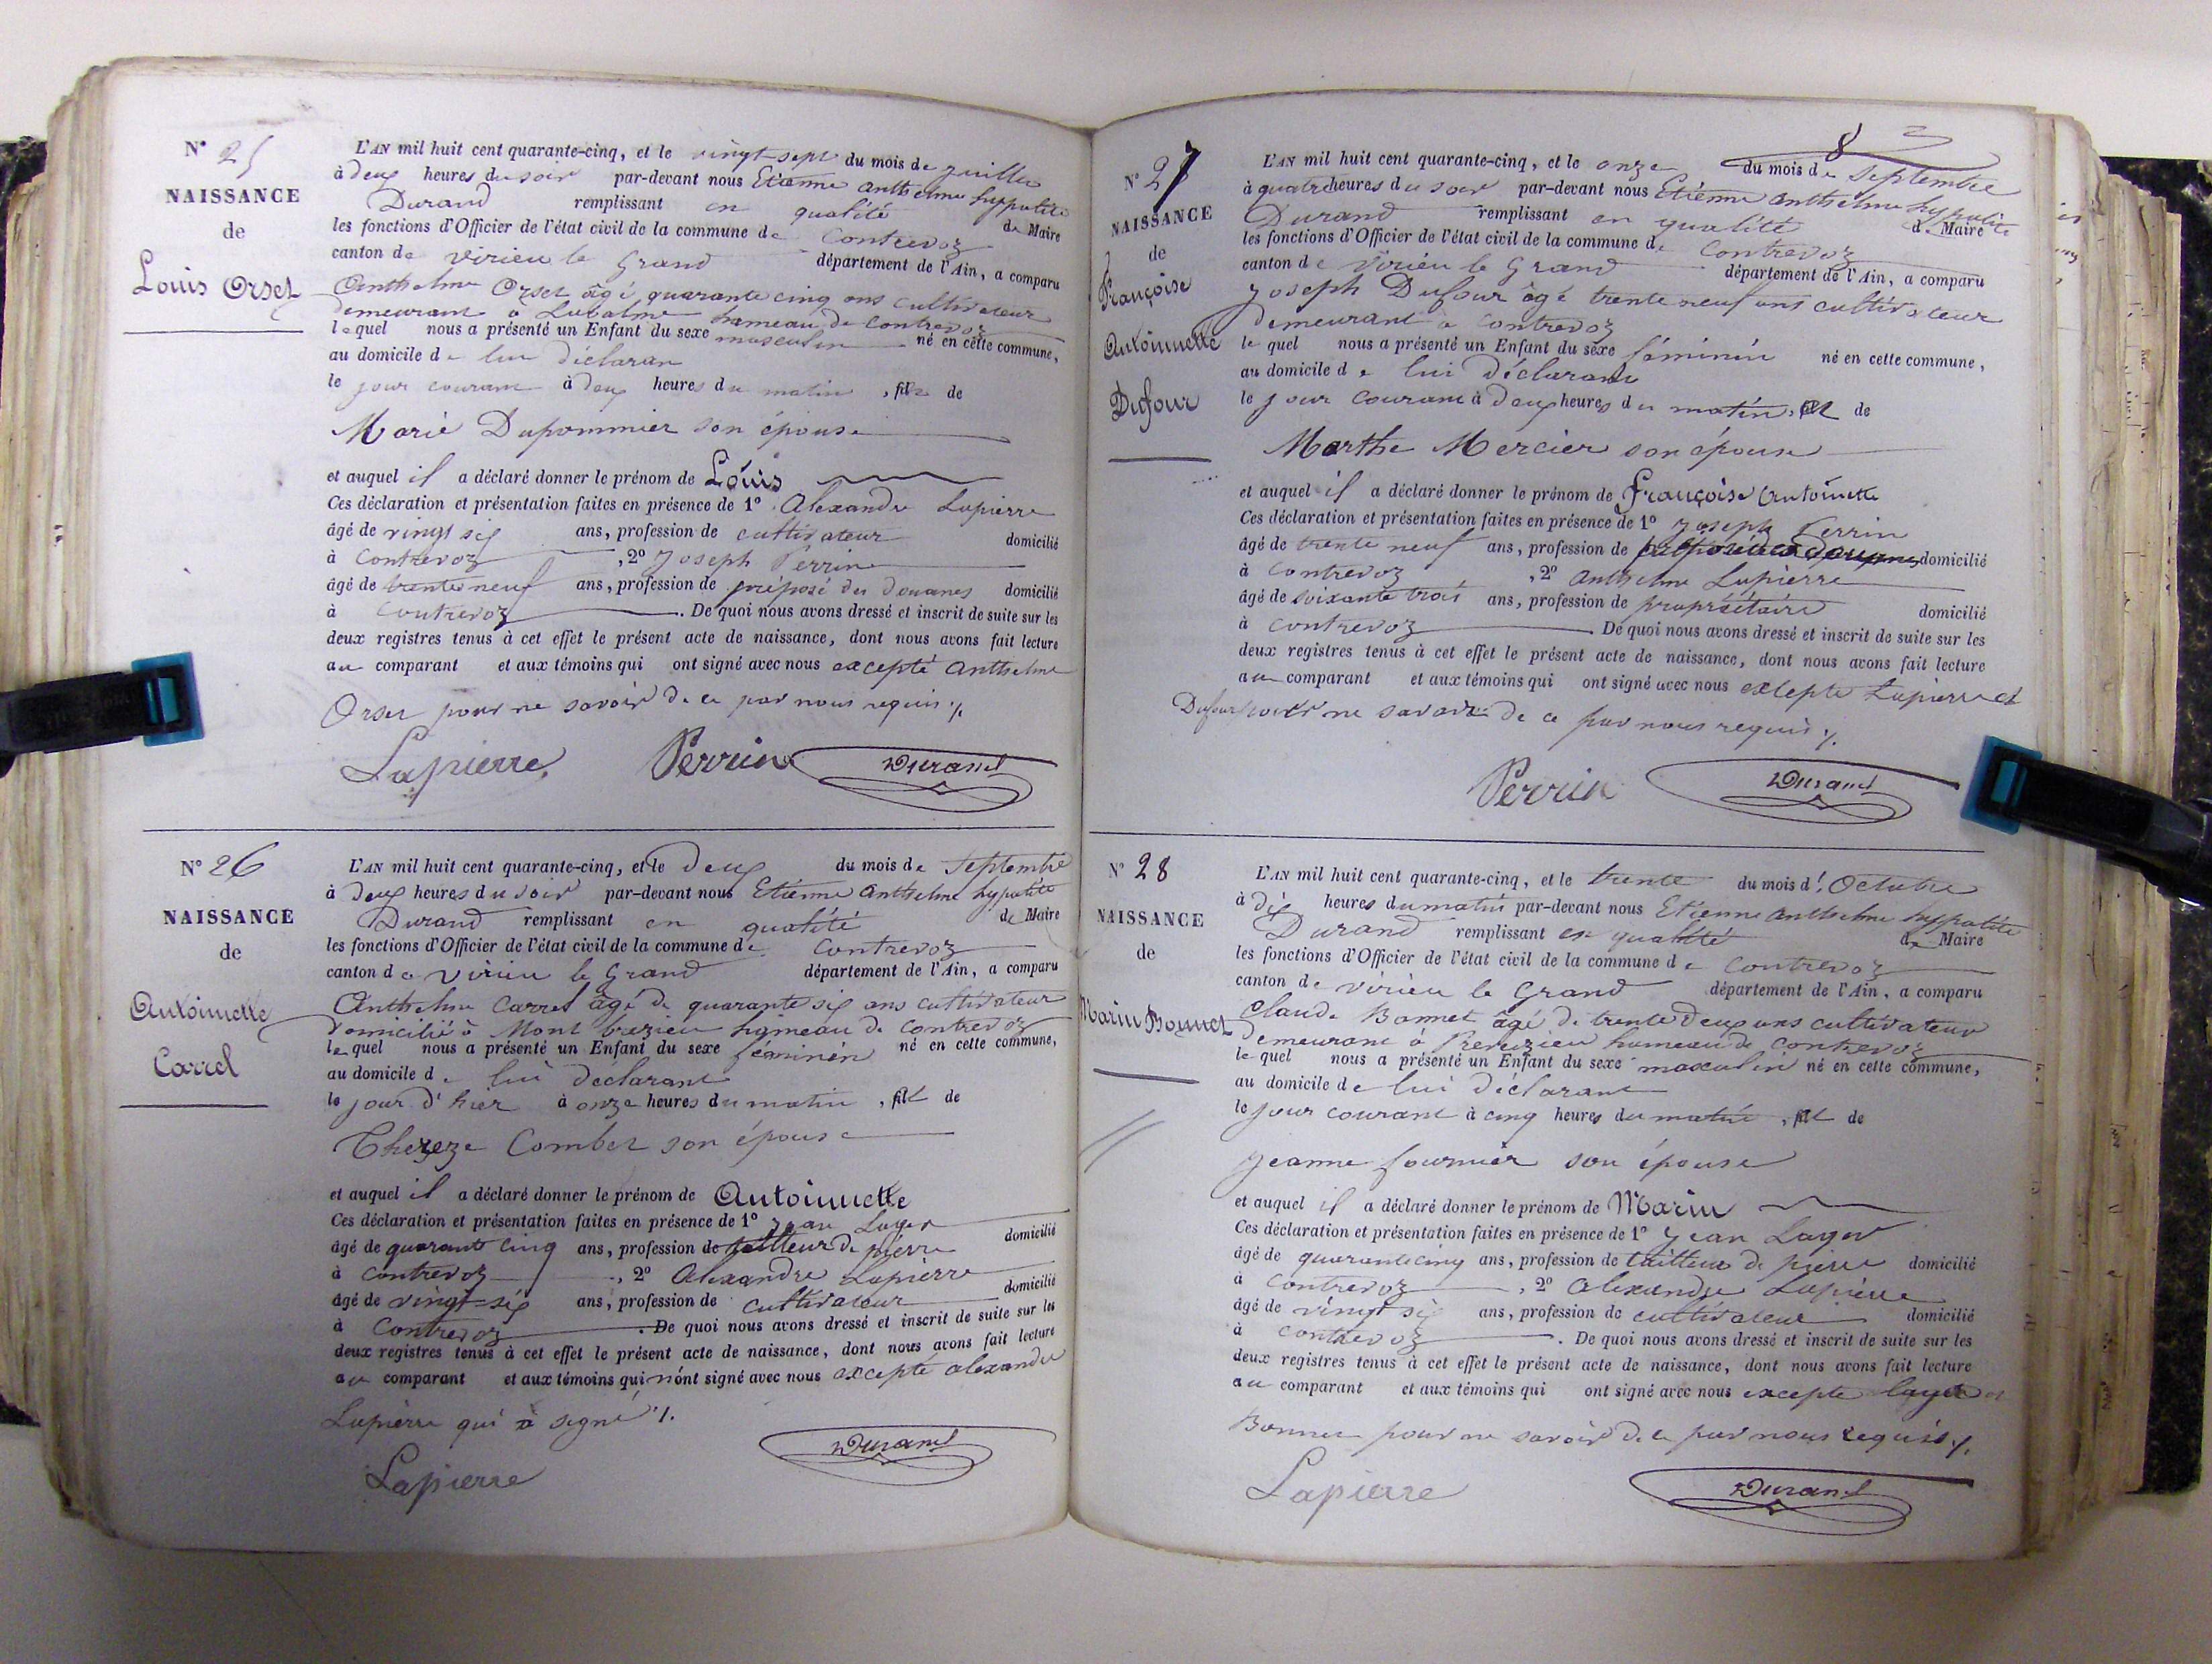 N° 25
NAISSANCE
de
Louis Orset
L'AN mil huit cent quarante-cinq, et le vingt-sept du mois de juillet
à deux heures du soir par-devant nous Etienne Anthelme hyppolite
Durand remplissant en qualité de Maire
les fonctions d'Officier de l'état civil de la commune de Contrevoz
canton de virieu le grand département de l'Ain, a comparu
Anthelme Orset âgé quarante cinq ans cultivateur
demeurant à Labalme hameau de Contrevoz
lequel nous a présenté un Enfant du sexe masculin né en cette commune,
au domicile de lui déclaran
le jour courant à deux heures du matin, fils de
Marie Dupommier son épouse
et auquel il a déclaré donner le prénom de Louis
Ces déclaration et présentation faites en présence de 1° Alexandre Lapierre
âgé de vingt six ans, profession de cultivateur domicilié
à Contrevoz, 2° Joseph Perrin
âgé de trente neuf ans, profession de préposé des douanes domicilié
à Contrevoz. De quoi nous avons dressé et inscrit de suite sur les
deux registres tenus à cet effet le présent acte de naissance, dont nous avons fait lecture
au comparant et aux témoins qui ont signé avec nous excepté Anthelme
Orset pour ne savoir de ce par nous requis ./.
Lapierre Perrin Durand
N° 26
NAISSANCE
de
Antoinette
Carrel
L'AN mil huit cent quarante-cinq, et le deux du mois de septembre
à deux heures du soir par-devant nous Etienne Anthelme hypolite
Durand remplissant en qualité de Maire
les fonctions d'Officier de l'état civil de la commune de Contrevoz
canton de virieu le grand département de l'Ain, a comparu
Anthelme Carrel âgé de quarante six ans cultivateur
domicilié à Mont brezieu hameau de Contrevoz
lequel nous a présenté un Enfant du sexe féminin né en cette commune,
au domicile de lui déclarant
le jour d'hier à onze heures du matin, fille de
Thereze Combet son épouse
et auquel il a déclaré donner le prénom de Antoinette
Ces déclaration et présentation faites en présence de 1° Jean Layer
âgé de quarante cinq ans, profession de tailleur de pierre domicilié
à Contrevoz, 2° Alexandre Lapierre
âgé de vingt-six ans, profession de cultivateur domicilié
à Contrevoz. De quoi nous avons dressé et inscrit de suite sur les
deux registres tenus à cet effet le présent acte de naissance, dont nous avons fait lecture
au comparant et aux témoins qui n'ont signé avec nous excepté alexandre
Lapierre qui a signé ./.
Lapierre Durand
8
N° 27
NAISSANCE
de
Françoise
Antoinette
Dufour
L'AN mil huit cent quarante-cinq, et le onze du mois de septembre
à quatre heures du soir par-devant nous Etienne Anthelme hypolite
Durand remplissant en qualité de Maire
les fonctions d'Officier de l'état civil de la commune de Contrevoz
canton de Virieu le Grand département de l'Ain, a comparu
Joseph Dufour âgé trente neuf ans cultivateur
demeurant à Contrevoz
lequel nous a présenté un Enfant du sexe féminin né en cette commune,
au domicile de lui déclarant
le jour courant à deux heures du matin, fille de
Marthe Mercier son épouse
et auquel il a déclaré donner le prénom de Françoise Antoinette
Ces déclaration et présentation faites en présence de 1° Joseph Perrin
âgé de trente neuf ans, profession de préposé des douanes domicilié
à Contrevoz, 2° Anthelme Lapierre
âgé de soixante trois ans, profession de propriétaire domicilié
à Contrevoz. De quoi nous avons dressé et inscrit de suite sur les
deux registres tenus à cet effet le présent acte de naissance, dont nous avons fait lecture
au comparant et aux témoins qui ont signé avec nous excepté Lapierre et
Dufour pour ne savoir de ce par nous requis ./.
Perrin Durand
N° 28
NAISSANCE
de
Marin Bonnet
L'AN mil huit cent quarante-cinq, et le trente du mois d'Octobre
à dix heures du matin par-devant nous Etienne Anthelme hyppolite
Durand remplissant en qualité de Maire
les fonctions d'Officier de l'état civil de la commune de Contrevoz
canton de virieu le Grand département de l'Ain, a comparu
Claude Bonnet âgé de trente deux ans cultivateur
demeurant à Premezieu hameau de Contrevoz
lequel nous a présenté un Enfant du sexe masculin né en cette commune,
au domicile de lui déclarant
le jour courant à cinq heures du matin, fils de
Jeanne fournier son épouse
et auquel il a déclaré donner le prénom de Marin
Ces déclaration et présentation faites en présence de 1° Jean Layer
âgé de quarante cinq ans, profession de tailleur de pierre domicilié
à Contrevoz, 2° Alexandre Lapierre
âgé de vingt six ans, profession de cultivateur domicilié
à Contrevoz. De quoi nous avons dressé et inscrit de suite sur les
deux registres tenus à cet effet le présent acte de naissance, dont nous avons fait lecture
au comparant et aux témoins qui ont signé avec nous excepté Layer et
Bonnet pour ne savoir de ce par nous requis ./.
Lapierre Durand